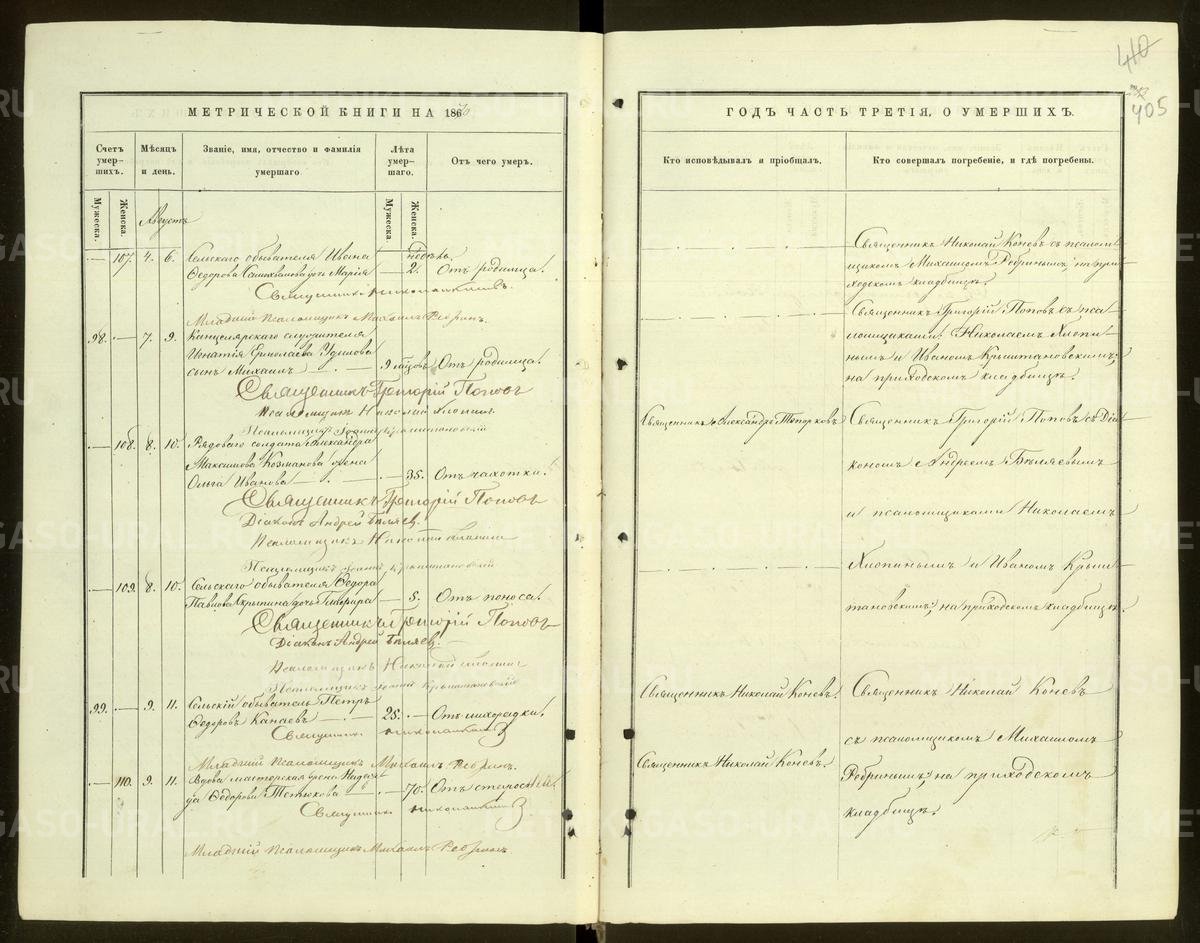 40
405
МЕТРИЧЕСКОЙ КНИГИ НА 1870
Счетъ умер- шихъ.
Мѣсяцъ и день.
Званіе, имя, отчество и фамилія умершаго.
Лѣта умер- шаго.
Отъ чего умеръ.
Мужеска.
Женска.
Мужеска.
Женска.
Августъ
107. 4. 6. Сельскаго обывателя Ивана недѣль.
Ѳедорова дочь Марія — 2. Отъ родимца.
Младшій Псаломщикъ Михаилъ Ребринъ.
98. — 7. 9. Канцелярскаго служителя
Игнатія Ермолаева Удимова
сынъ Михаилъ — 9 мѣсяцовъ Отъ родимца.
Священникъ Григорій Поповъ
Псаломщикъ Николай Хлопинъ
Псаломщикъ Іоаннъ Крыштановскій
— 108. 8. 10. Рядоваго солдата Александра
Максимова Козманова жена
Ольга Иванова — 35. Отъ чахотки.
Священникъ Григорій Поповъ
Діаконъ Андрей Бѣляев.
Псаломщикъ Николай Хлопинъ
Псаломщикъ Іоаннъ Крыштановскій
— 109. 8. 10. Сельскаго обывателя Ѳедора
Павлова Скрыпина дочь Глафира — 5. Отъ поноса.
Священникъ Григорій Поповъ
Діаконъ Андрей Бѣляев.
Псаломщикъ Николай Хлопинъ
Псаломщикъ Іоаннъ Крыштановскій
99. — 9. 11. Сельскій обыватель Петръ
Ѳедоровъ Канаевъ — 25. — Отъ лихорадки.
Младшій Псаломщикъ Михаилъ Ребринъ.
— 110. 9. 11. Вдова мастерская жена Надеж-
да Ѳедорова Тетюхова — 70. Отъ старости.
Младшій Псаломщикъ Михаилъ Ребринъ
ГОДЪ ЧАСТЬ ТРЕТІЯ, О УМЕРШИХЪ.
Кто исповѣдывалъ и пріобщалъ.
Кто совершалъ погребеніе, и гдѣ погребены.
Священникъ Николай Коневъ съ псалом-
щикомъ Михаиломъ Ребринымъ, на при-
ходскомъ кладбищѣ.
Священникъ Григорій Поповъ съ пса-
ломщиками: Николаемъ Хлопи-
нымъ и Иваномъ Крыштановскимъ,
на приходскомъ кладбищѣ.
Священникъ Александръ Топорковъ
Священникъ Григорій Поповъ съ Діа-
кономъ Андреемъ Бѣляевымъ
и псаломщиками Николаемъ
Хлопинымъ и Иваномъ Крыш-
тановскимъ, на приходскомъ кладбищѣ.
Священникъ Николай Коневъ.
Священникъ Николай Коневъ
съ псаломщикомъ Михаиломъ
Священникъ Николай Коневъ.
Ребринымъ, на приходскомъ
кладбищѣ.
METRIKI.GASO-URAL.RU